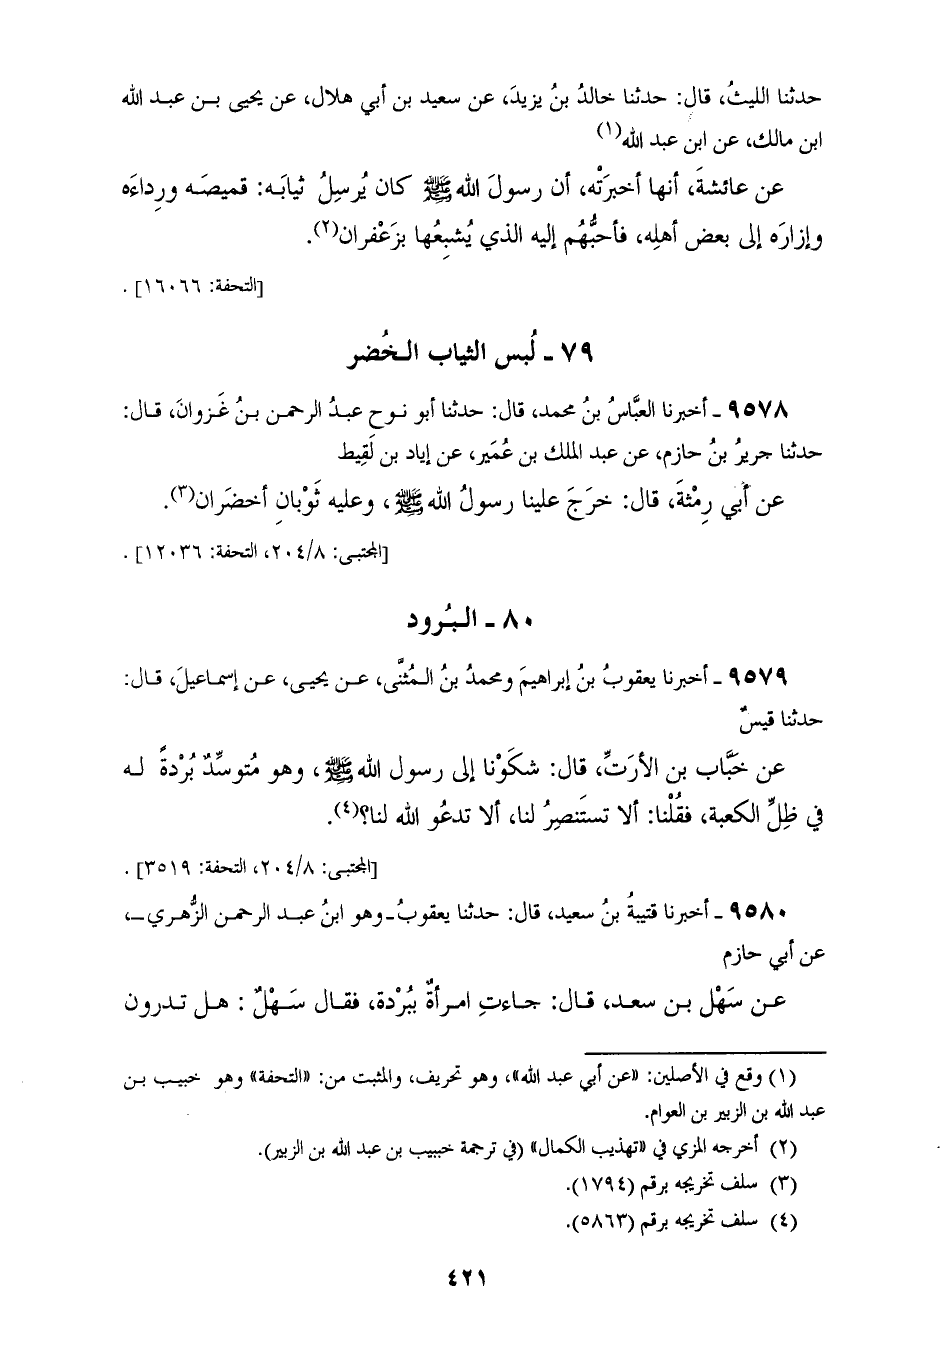 حدثنا الليثُ، قال: حدثنا خالدُ بنُ يزيدَ، عن سعيد بن أبي هلال، عن يحيى بـن عبـد الله
ابن مالك، عن ابن عبد الله(١)
عن عائشةَ، أنها أخبرَتْه، أن رسولَ الله ﷺ كان يُرسِلُ ثيابَـه: قميصَـه ورِداءَه
وإزارَه إلى بعض أهلِه، فأحبُّهُم إليه الذي يُشبِعُها بزَعْفران(٢).
[التحفة: ١٦٠٦٦] .
٧٩ ـ لُبس الثياب الـخُضر
٩٥٧٨ ـ أخبرنا العبَّاسُ بنُ محمد، قال: حدثنا أبو نـوح عبـدُ الرحمـن بـنُ غَـزوانَ، قـال:
حدثنا جريرُ بنُ حازم، عن عبد الملك بن عُمَير، عن إياد بن لَقِيط
عن أبي رِمْثةَ، قال: خرَجَ علينا رسولُ الله ﷺ، وعليه ثَوْبانِ أخضَران(٣).
[المجتبى: ٢٠٤/٨، التحفة: ١٢٠٣٦] .
٨٠ ـ الـبُرود
٩٥٧٩ ـ أخبرنا يعقوبُ بنُ إبراهيمَ ومحمدُ بنُ الـمُثنَّى، عـن يحيـى، عـن إسمـاعيلَ، قـال:
حدثنا قيسٌ
عن خَبَّاب بن الأرَتِّ، قال: شكَوْنا إلى رسول الله ﷺ، وهو مُتوسِّدٌ بُرْدةً لـه
في ظِلِّ الكعبة، فقُلْنا: ألا تستَنصِرُ لنا، ألا تدعُو الله لنا؟(٤).
[المجتبى: ٢٠٤/٨، التحفة: ٣٥١٩] .
٩٥٨٠ ـ أخبرنا قتيبةُ بنُ سعيد، قال: حدثنا يعقوبُ ـ وهو ابنُ عبـد الرحمـن الزُّهـري ـ،
عن أبي حازم
عـن سَهْل بـن سعـد، قـال: جـاءتِ امـرأةٌ بُبُرْدة، فقـال سَـهْلٌ : هـل تـدرون
(١) وقع في الأصلين: «عن أبي عبد الله»، وهو تحريف، والمثبت من: «التحفة» وهو خبيب بـن
عبد الله بن الزبير بن العوام.
(٢) أخرجه المزي في «تهذيب الكمال» (في ترجمة خبيب بن عبد الله بن الزبير).
(٣) سلف تخريجه برقم (١٧٩٤).
(٤) سلف تخريجه برقم (٥٨٦٣).
٤٢١